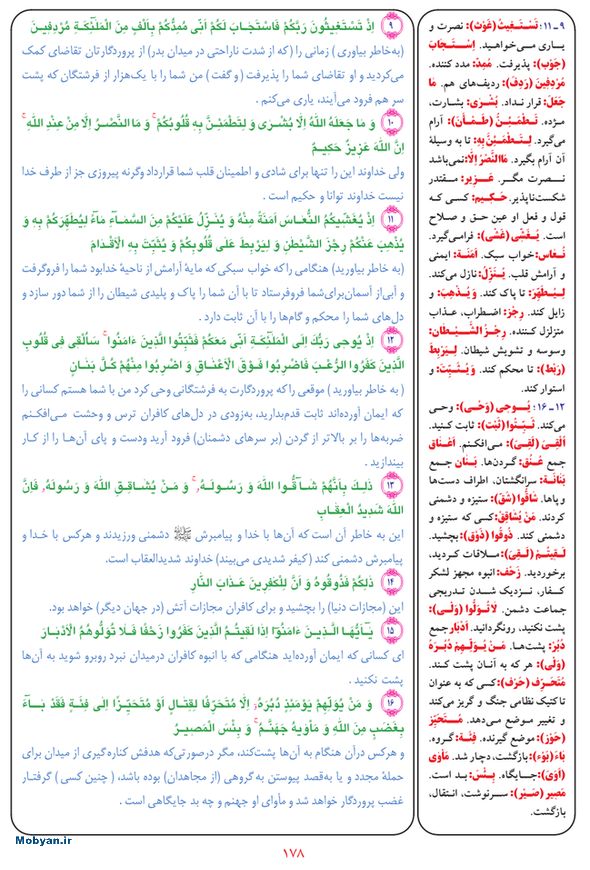 ۹ اِذْ تَسْتَغِیثُونَ رَبَّکُمْ فَاسْتَجَابَ لَکُمْ اَنّی مُمِدُّکُمْ بِاَلْفٍ مِنَ الْمَلٰٓئِکَةِ مُرْدِفینَ
(به‌خاطر بیاوری ) زمانی را (که از شدت ناراحتی در میدان بدر) از پروردگارتان تقاضای کمک
می‌کردید و او تقاضای شما را پذیرفت ( و گفت ) من شما را با یک‌هزار از فرشتگان که پشت
سر هم فرود می‌آیند، یاری می‌کنم .
۱۰ وَ مَا جَعَلَهُ اللّٰهُ اِلَّا بُشْرٰی وَ لِتَطْمَئِنَّ بِهِ قُلُوبُکُمْ وَ مَا النَّصْرُ اِلَّا مِنْ عِنْدِ اللّٰهِ
اِنَّ اللّٰهَ عَزیزٌ حَکیمٌ
ولی خداوند این را تنها برای شادی و اطمینان قلب شما قرارداد وگرنه پیروزی جز از طرف خدا
نیست خداوند توانا و حکیم است .
۱۱ اِذْ یُغَشّیکُمُ النُّعَاسَ اَمَنَةً مِنْهُ وَ یُنَزِّلُ عَلَیْکُمْ مِنَ السَّمَآءِ مَآءً لِیُطَهِّرَکُمْ بِهِ وَ
یُذْهِبَ عَنْکُمْ رِجْزَ الشَّیْطٰنِ وَ لِیَرْبِطَ عَلٰی قُلُوبِکُمْ وَ یُثَبِّتَ بِهِ الْاَقْدَامَ
(به خاطر بیاورید) هنگامی را که خواب سبکی که مایهٔ آرامش از ناحیهٔ خدا بود شما را فروگرفت
و آبی از آسمان برای شما فروفرستاد تا با آن شما را پاک و پلیدی شیطان را از شما دور سازد و
دل‌های شما را محکم و گام‌ها را با آن ثابت دارد .
۱۲ اِذْ یُوحی رَبُّکَ اِلَی الْمَلٰٓئِکَةِ اَنّی مَعَکُمْ فَثَبِّتُوا الَّذینَ ءَامَنُوا سَاُلْقی فی قُلُوبِ
الَّذینَ کَفَرُوا الرُّعْبَ فَاضْرِبُوا فَوْقَ الْاَعْنَاقِ وَ اضْرِبُوا مِنْهُمْ کُلَّ بَنَانٍ
( به خاطر بیاورید ) موقعی را که پروردگارت به فرشتگانی وحی کرد من با شما هستم کسانی را
که ایمان آورده‌اند ثابت قدم‌بدارید، به‌زودی در دل‌های کافران ترس و وحشت می‌افکنم
ضربه‌ها را بر بالاتر از گردن (بر سرهای دشمنان) فرود آرید ودست و پای آن‌ها را از کار
بیندازید .
۱۳ ذٰلِکَ بِاَنَّهُمْ شَآقُّوا اللّٰهَ وَ رَسُولَهُ وَ مَنْ یُشَاقِقِ اللّٰهَ وَ رَسُولَهُ فَاِنَّ
اللّٰهَ شَدیدُ الْعِقَابِ
این به خاطر آن است که آن‌ها با خدا و پیامبرش ﷺ دشمنی ورزیدند و هرکس با خدا و
پیامبرش دشمنی کند (کیفر شدیدی می‌بیند) خداوند شدیدالعقاب است .
۱۴ ذٰلِکُمْ فَذُوقُوهُ وَ اَنَّ لِلْکٰفِرینَ عَذَابَ النَّارِ
این (مجازات دنیا) را بچشید و برای کافران مجازات آتش (در جهان دیگر) خواهد بود.
۱۵ یٰٓاَیُّهَا الَّذینَ ءَامَنُوٓا اِذَا لَقیتُمُ الَّذینَ کَفَرُوا زَحْفًا فَلَا تُوَلُّوهُمُ الْاَدْبَارَ
ای کسانی که ایمان آورده‌اید هنگامی که با انبوه کافران درمیدان نبرد روبرو شوید به آن‌ها
پشت نکنید .
۱۶ وَ مَنْ یُوَلِّهِمْ یَوْمَئِذٍ دُبُرَهُ اِلَّا مُتَحَرِّفًا لِقِتَالٍ اَوْ مُتَحَیِّزًا اِلٰی فِئَةٍ فَقَدْ بَآءَ
بِغَضَبٍ مِنَ اللّٰهِ وَ مَاْوٰیهُ جَهَنَّمُ وَ بِئْسَ الْمَصیرُ
و هرکس درآن هنگام به آن‌ها پشت‌کند، مگر درصورتی‌که هدفش کناره‌گیری از میدان برای
حملهٔ مجدد و یا به‌قصد پیوستن به‌گروهی (از مجاهدان) بوده باشد، ( چنین کسی ) گرفتار
غضب پروردگار خواهد شد و مأوای او جهنم و چه بد جایگاهی است .
۹ ـ ۱۱: تَسْتَغیثُ (غَوْث): نصرت و
یاری می‌خواهید. اِسْتَجابَ
(جَوْب): پذیرفت. مُمِدّ: مدد کننده.
مُرْدِفینَ (رَدِف): ردیف‌های هم. مَا
جَعَلَ: قرار نداد. بُشْری: بشارت،
مژده. تَطْمَئِنُّ (طَمْأن): آرام
می‌گیرد. لِتَطْمَئِنَّ بِهِ: تا به وسیلهٔ
آن آرام بگیرد. مَا النَّصْرُ اِلّا: نمی‌باشد
نصرت مگر. عَزیز: مقتدر
شکست‌ناپذیر. حَکیم: کسی که
قول و فعل او عین حق و صلاح
است. یُغَشّی (غَشی): فرامی‌گیرد.
نُعاس: خواب سبک. اَمَنَة: ایمنی
و آرامش قلب. یُنَزِّلُ: نازل می‌کند.
لِیُطَهِّرَ: تا پاک کند. وَ یُذْهِبَ: و
زایل کند. رِجْز: اضطراب، عذاب
متزلزل کننده. رِجْزَ الشَّیْطان:
وسوسه و تشویش شیطان. لِیَرْبِطَ
(رَبْط): تا محکم کند. وَ یُثَبِّتَ: و
استوار کند.
۱۲ ـ ۱۶: یُوحی (وَحْی): وحی
می‌کند. ثَبِّتُوا (ثَبْت): ثابت کنید.
اُلْقی (لَقِیَ): می‌افکنم. اَعْناق
جمع عُنُق: گردن‌ها. بَنان جمع
بَنانَة: سرانگشتان، اطراف دست‌ها
و پاها. شاقُّوا (شَقّ): ستیزه و دشمنی
کردند. مَنْ یُشاقِقْ: کسی که ستیزه و
دشمنی کند. ذُوقُوا (ذَوْق): بچشید.
لَقیتُمْ (لَقِیَ): ملاقات کردید،
برخوردید. زَحْف: انبوه مجهز لشکر
کفار، نزدیک شدن تدریجی
جماعت دشمن. لا تُوَلُّوا (وَلْی):
پشت نکنید، رونگردانید. اَدْبار جمع
دُبُر: پشت‌ها. مَنْ یُوَلِّهِمْ دُبُرَهُ
(وَلْی): هر که به آنان پشت کند.
مُتَحَرِّف (حَرْف): کسی که به عنوان
تاکتیک نظامی جنگ و گریز می‌کند
و تغییر موضع می‌دهد. مُتَحَیِّز
(حَوْز): موضع گیرنده. فِئَة: گروه.
بَاءَ (بَوْء): بازگشت، دچار شد. مَأوٰی
(اَوٰی): جایگاه. بِئْسَ: بد است.
مَصیر (صَیْر): سرنوشت، انتقال،
بازگشت.
Mobyan.ir
۱۷۸